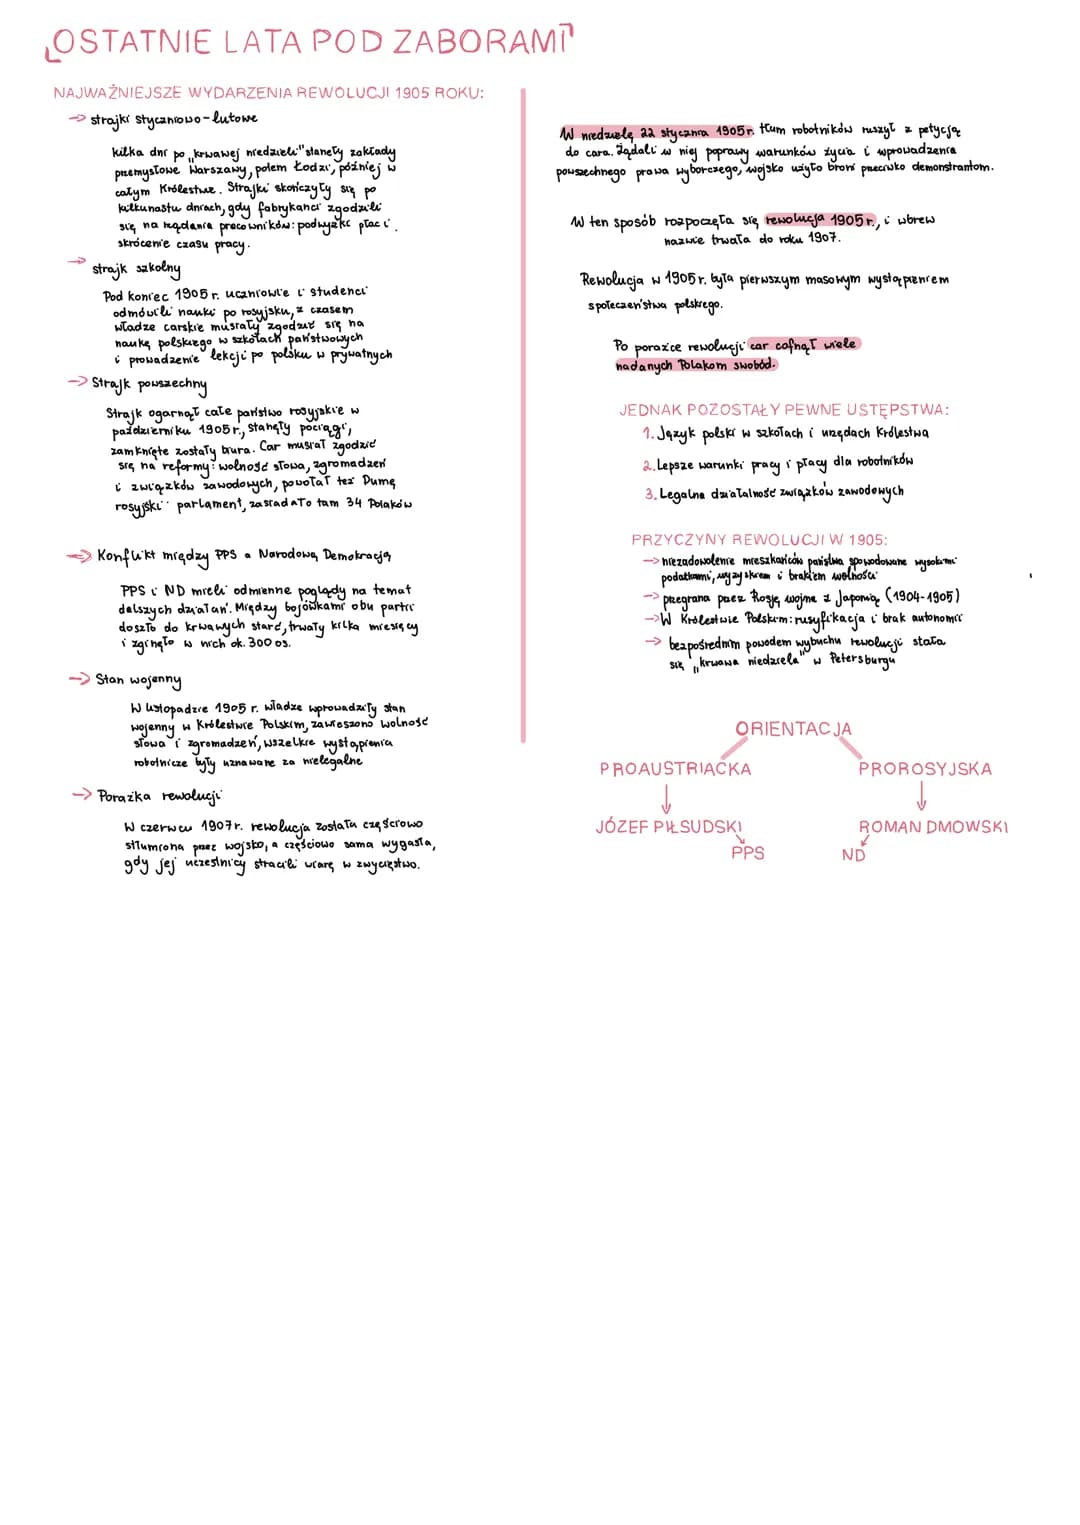 OSTATNIE LATA POD ZABORAMI
NAJWAŻNIEJSZE WYDARZENIA REWOLUCJI 1905 ROKU:
→ strajki styczniowo-lutowe
kilka dni po „krwawej niedzieli" stanęły zakłady
przemysłowe Warszawy, potem Łodzi, później w
całym Królestwie. Strajki skończyły się po
kilkunastu dniach, gdy fabrykanci zgodzili
się na żądania pracowników: podwyżki płac i
skrócenie czasu pracy.
→ strajk szkolny
Pod koniec 1905 r. uczniowie i studenci
odmówili nauki po rosyjsku, z czasem
władze carskie musiały zgodzić się na
naukę polskiego w szkołach państwowych
i prowadzenie lekcji po polsku w prywatnych
→ Strajk powszechny
Strajk ogarnął całe państwo rosyjskie w
październiku 1905 r., stanęły pociągi,
zamknięte zostały biura. Car musiał zgodzić
się na reformy: wolność słowa, zgromadzeń
i związków zawodowych, powołał też Dumę
rosyjski parlament, zasiadało tam 34 Polaków
→ Konflikt między PPS a Narodową Demokracją
PPS i ND mieli odmienne poglądy na temat
dalszych działań. Między bojówkami obu partii
doszło do krwawych starć, trwały kilka miesięcy
i zginęło w nich ok. 300 os.
→ Stan wojenny
W listopadzie 1905 r. władze wprowadziły stan
wojenny w Królestwie Polskim, zawieszono wolność
słowa i zgromadzeń, wszelkie wystąpienia
robotnicze były uznawane za nielegalne
→ Porażka rewolucji
W czerwcu 1907r. rewolucja została częściowo
stłumiona przez wojsko, a częściowo sama wygasła,
gdy jej uczestnicy stracili wiarę w zwycięstwo.
W niedzielę 22 stycznia 1905r. tłum robotników ruszył z petycją
do cara. Żądali w niej poprawy warunków życia i wprowadzenia
powszechnego prawa wyborczego, wojsko użyło broni przeciwko demonstrantom.
W ten sposób rozpoczęła się rewolucja 1905 r., i wbrew
nazwie trwała do roku 1907.
Rewolucja w 1905r. była pierwszym masowym wystąpieniem
społeczeństwa polskiego.
Po porażce rewolucji car cofnął wiele
nadanych Polakom swobód.
JEDNAK POZOSTAŁY PEWNE USTĘPSTWA:
1. Język polski w szkołach i urzędach Królestwa
2. Lepsze warunki pracy i płacy dla robotników
3. Legalna działalność związków zawodowych
PRZYCZYNY REWOLUCJI W 1905:
→ niezadowolenie mieszkańców państwa spowodowane wysokimi
podatkami, wyzyskiem i brakiem wolności
→ przegrana przez Rosję wojna z Japonią (1904-1905)
→ W Królestwie Polskim: rusyfikacja i brak autonomii
→ bezpośrednim powodem wybuchu rewolucji stała
się „krwawa niedziela" w Petersburgu
ORIENTACJA
PROAUSTRIACKA PROROSYJSKA
JÓZEF PIŁSUDSKI ROMAN DMOWSKI
PPS ND